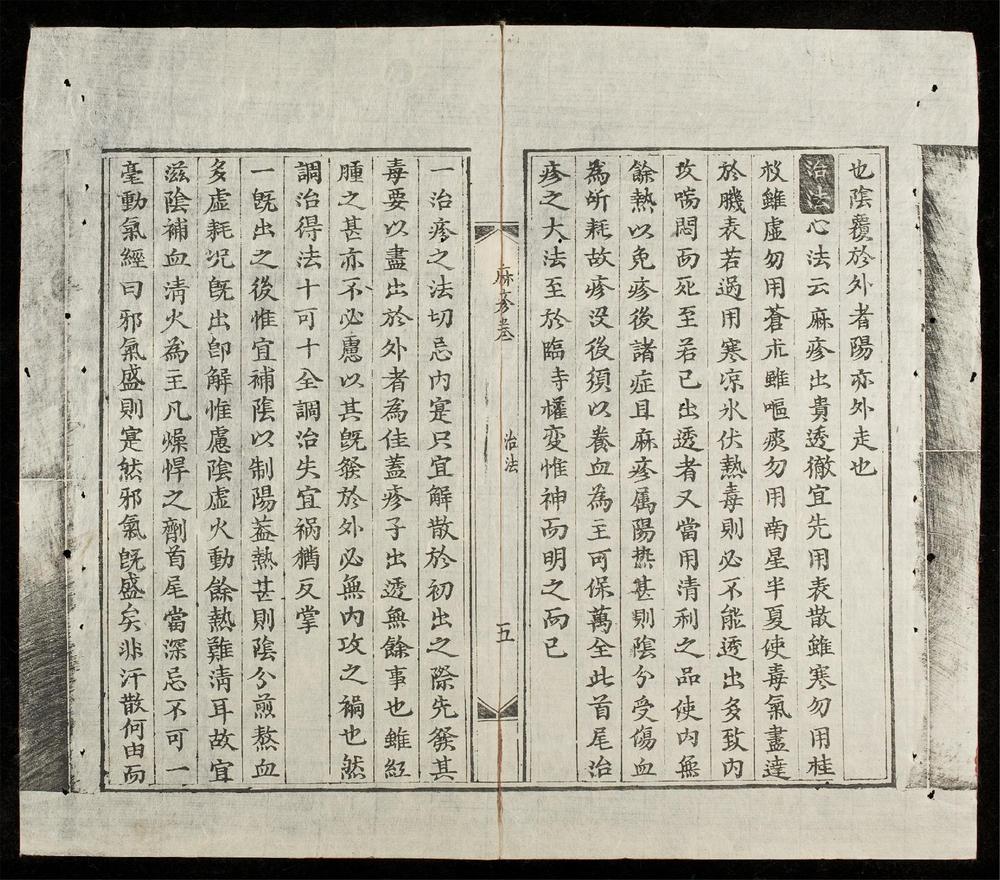 也陰覆於外者陽亦外走也
治法心法云麻疹出貴透徹宜先用表散雖寒勿用桂
枝雖虛勿用蒼朮雖嘔痰勿用南星半夏使毒氣盡達
於膿表若過用寒凉氷伏熱毒則必不能透出多致內
攻喘悶而死至若已出透者又當用清利之品使內無
餘熱以免疹後諸症且麻疹属陽熱甚則陰分受傷血
為所耗故疹没後須以養血為主可保萬全此首尾治
疹之大法至於臨寺懽変惟神而明之而已
麻疹卷
治法
五
一治疹之法切忌內寔只宜解散於初出之際先發其
毒要以盡出於外者為佳蓋疹子出透無餘事也雖紅
腫之甚亦不必慮以其既發於外必無內攻之禍也然
調治得法十可十全調治失宜禍猶反掌
一既出之後惟宜補陰以制陽蓋熱甚則陰分煎熬血
多虛耗况既出即解惟慮陰虛火動餘熱難清耳故宜
滋陰補血清火為主凡燥悍之劑首尾當深忌不可一
毫動氣經曰邪氣盛則寔然邪氣既盛矣非汗散何由而